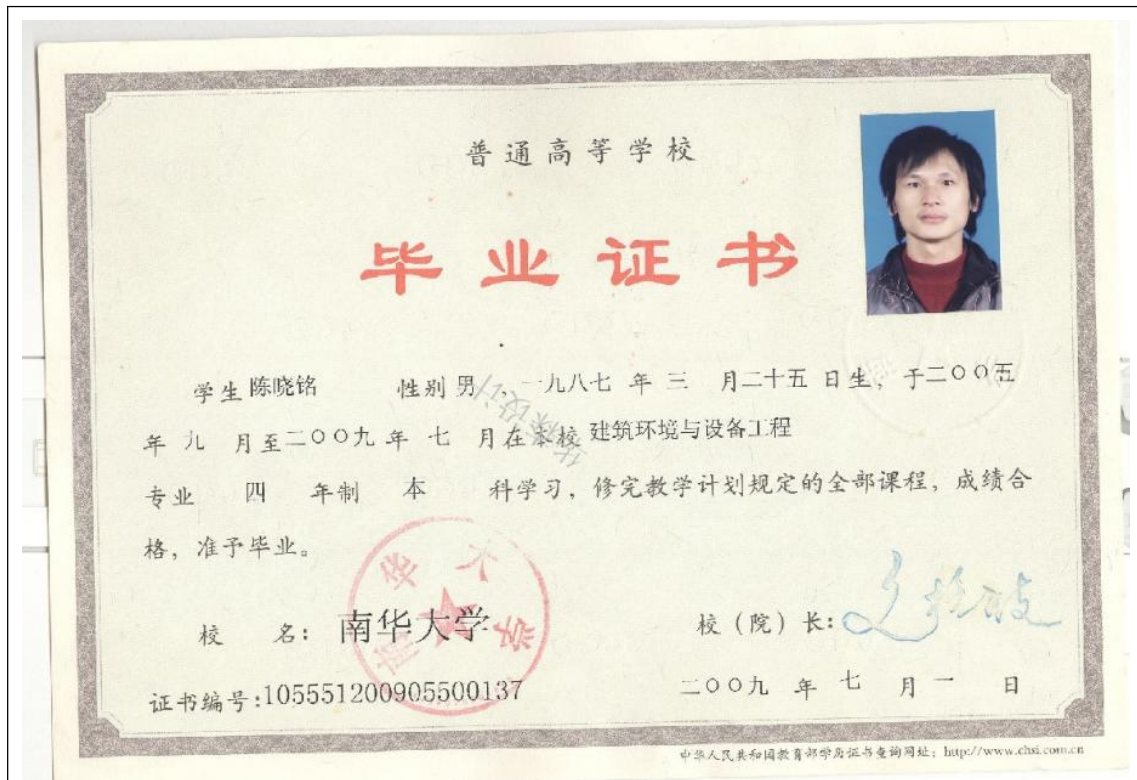 普通高等学校
毕业证书
学生 陈晓铭 性别 男 , 一九八七 年 三 月二十五 日生, 于二〇〇五
年 九 月至二〇〇九 年 七 月在本校 建筑环境与设备工程
专业 四 年制 本 科学习, 修完教学计划规定的全部课程, 成绩合
格, 准予毕业。
校 名: 南华大学
校（院）长:
证书编号:105551200905500137
二〇〇九 年 七 月 一 日
南华大学
中华人民共和国教育部学历证书查询网址: http://www.chsi.com.cn